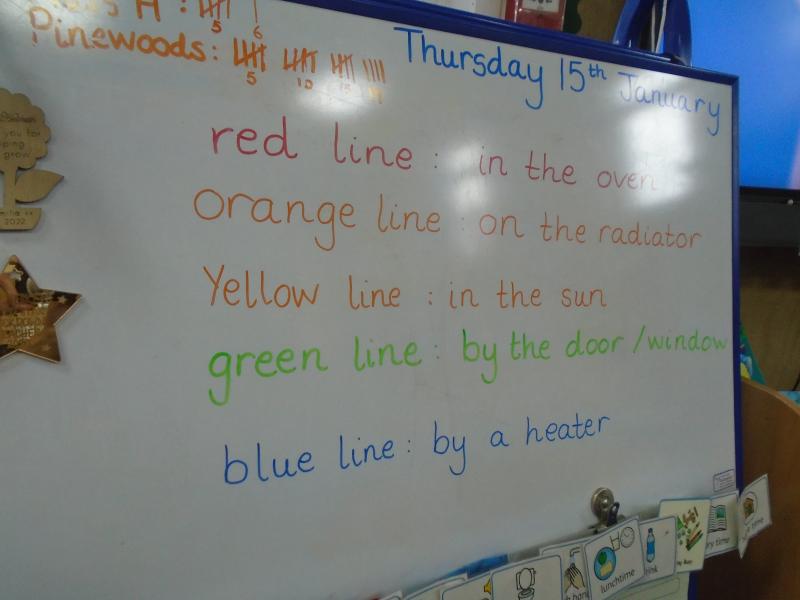 H :
5 6
Pinewoods:
5 10 15
Thursday 15th January
red line : in the oven
orange line : on the radiator
Yellow line : in the sun
green line : by the door / window
blue line : by a heater
you for
grow
2022
lunchtime
time